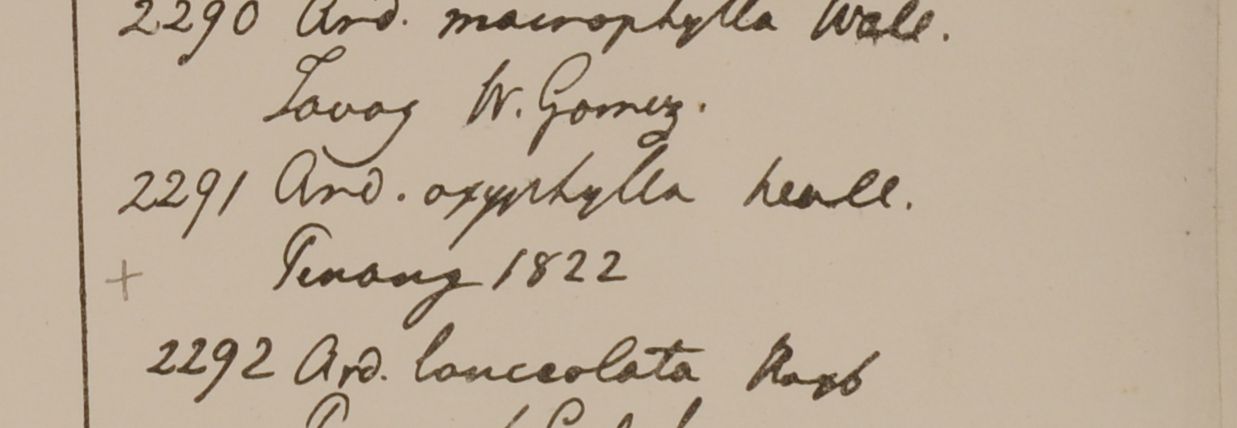 2290 Ard. macrophylla Wall.
Tavoy W. Gomez.
2291 Ard. oxyphylla Wall.
+ Penang 1822
2292 Ard. lanceolata Roxb